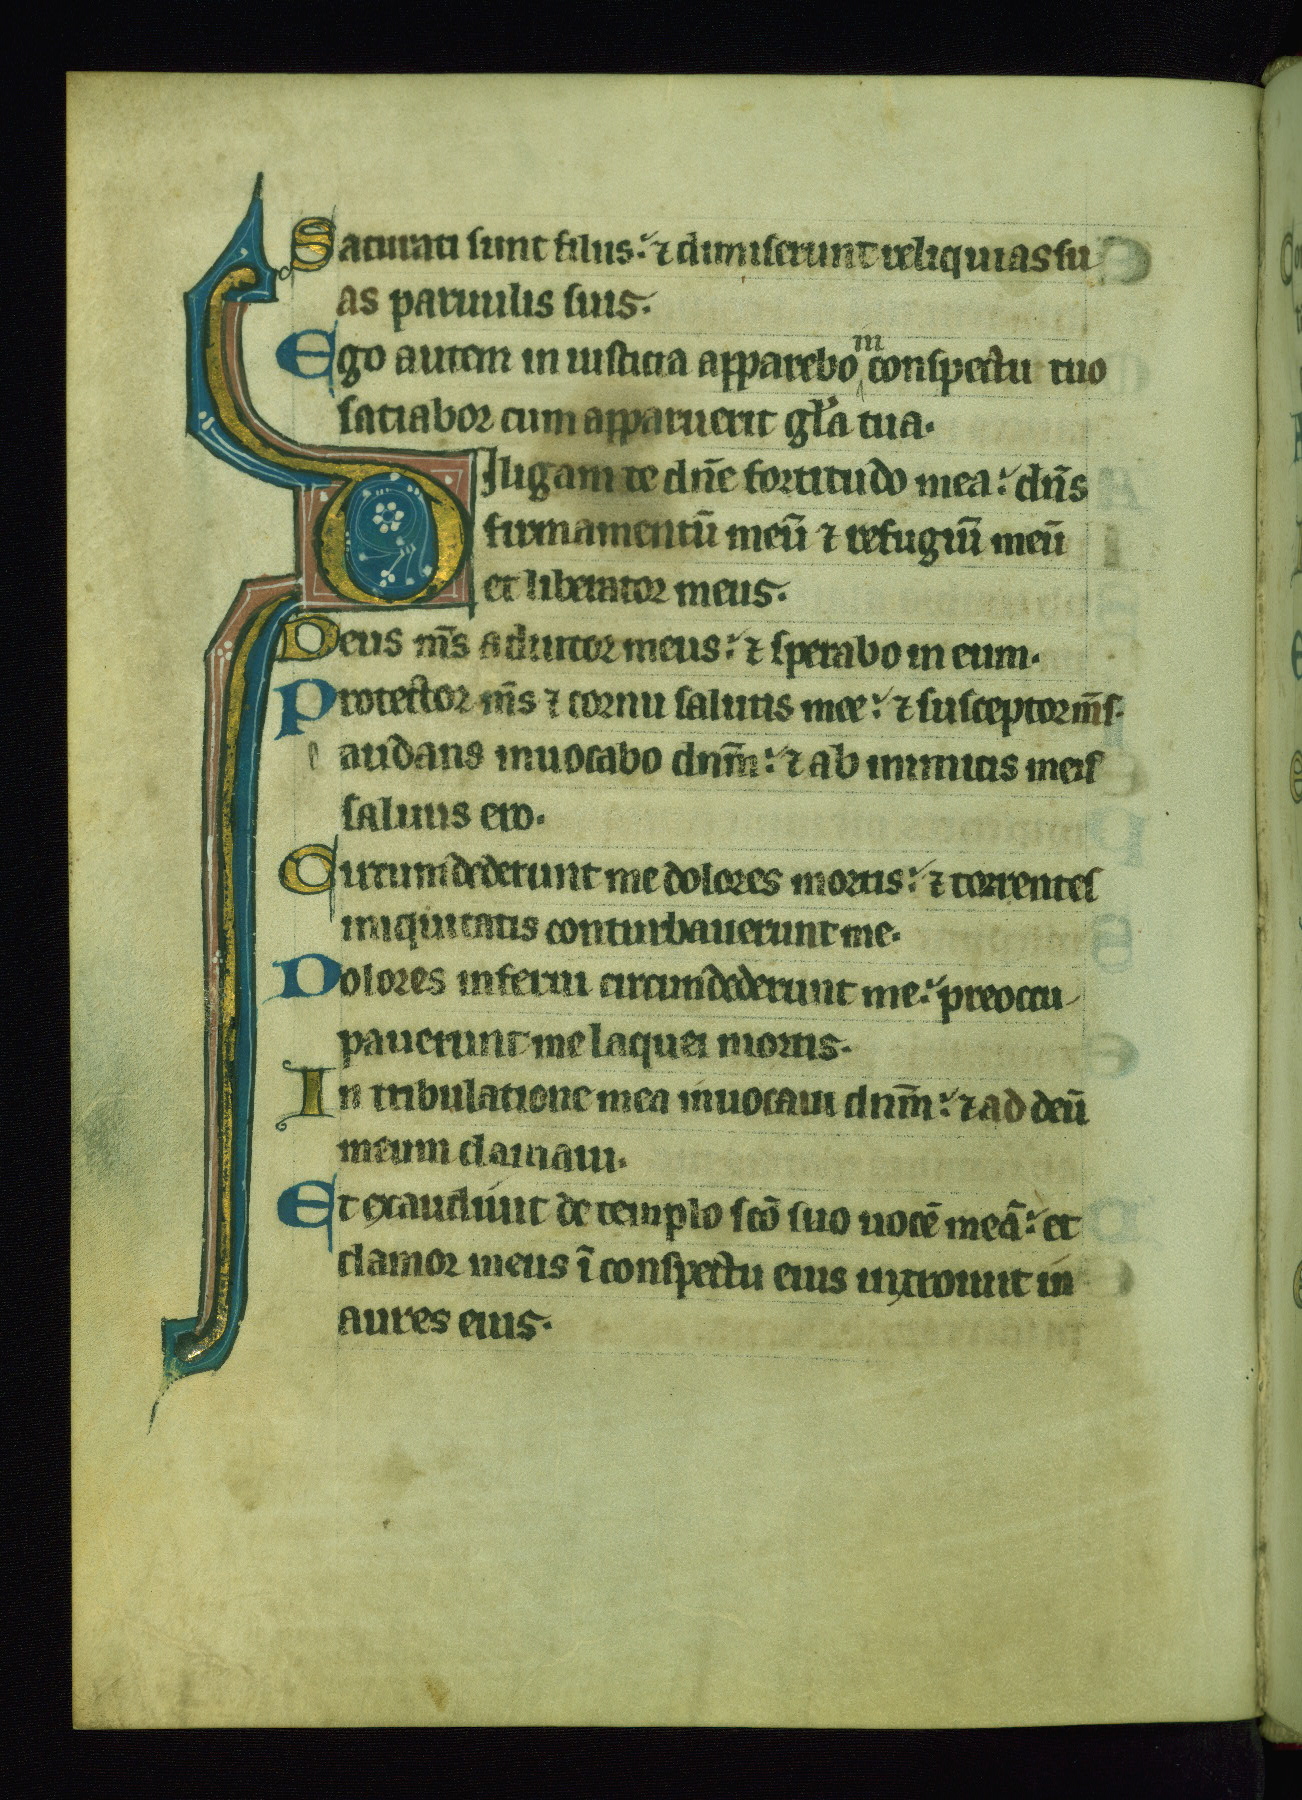 Saturati sunt filiis: ⁊ dimiserunt reliquias su
as paruulis suis.
Ego autem in iusticia apparebo in conspectu tuo
satiabor cum apparuerit gl̃a tua.
Diligam te dñe fortitudo mea: dñs
firmamentũ meũ ⁊ refugiũ meũ
et liberator meus.
Deus m̃s adiutor meus: ⁊ sperabo in eum.
Protector m̃s ⁊ cornu salutis mee: ⁊ susceptor m̃s.
l audans inuocabo dnm̃: ⁊ ab inimicis meis
saluus ero.
Circumdederunt me dolores mortis: ⁊ torrentes
iniquitatis conturbauerunt me.
Dolores inferni circumdederunt me: preoccu
pauerunt me laquei mortis.
In tribulatione mea inuocaui dnm̃: ⁊ ad deũ
meum clamaui.
Et exaudiuit de templo scõ suo uocẽ meã: et
clamor meus ĩ conspectu eius introiuit in
aures eius.